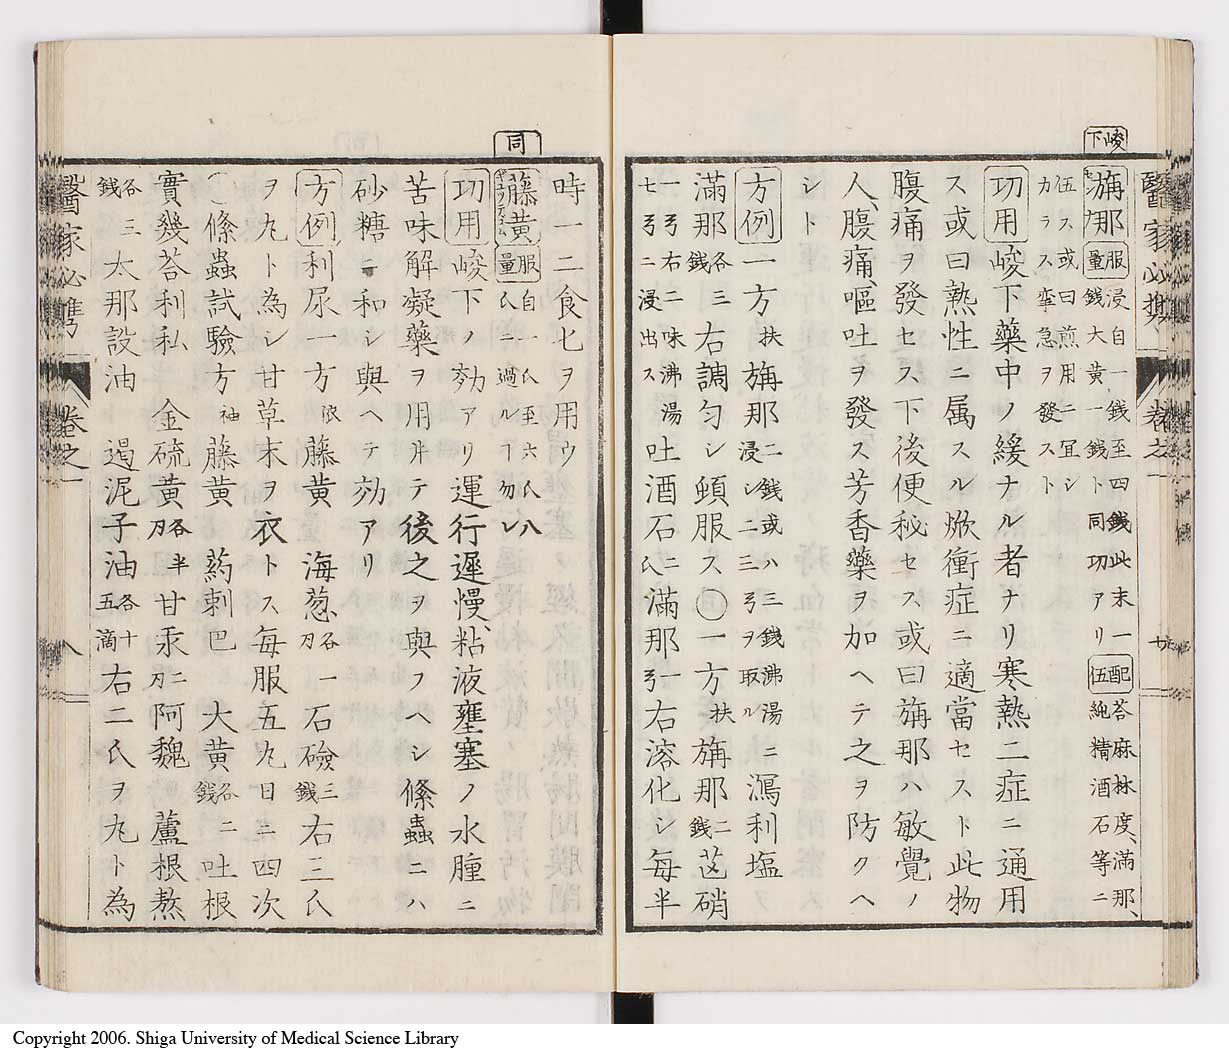 峻下
醫家必携 卷之一 七
旃那 センナ 服量 浸自一錢至四錢此末一錢大黄一錢ト同功アリ 配伍 荅麻林度、滿那、純精酒石等ニ
伍ス或曰煎用ニ冝シカラス攣急ヲ發スト
功用 峻下藥中ノ緩ナル者ナリ寒熱二症ニ通用
ス或曰熱性ニ属スル焮衝症ニ適當セスト此物
腹痛ヲ發セス下後便秘セス或曰旃那ハ敏覺ノ
人、腹痛、嘔吐ヲ發ス芳香藥ヲ加ヘテ之ヲ防クヘ
シト
方例 一方 扶 旃那 二錢或ハ三錢沸湯ニ浸シ二三弓ヲ取ル 瀉利塩
滿那 各三錢 右調匀シ頓服ス〇一方 扶 旃那 二錢 芒硝
一弓右二味沸湯七弓ニ浸出ス 吐酒石 二氏 滿那 一弓 右溶化シ毎半
時一二食匕ヲ用ウ
同
藤黄 服量 自一氏至六氏八氏ニ過ルヿ勿レ
功用 峻下ノ効アリ運行遲慢、粘液壅塞ノ水腫ニ
苦味解凝藥ヲ用ヰテ後之ヲ與フヘシ絛蟲ニハ
砂糖ニ和シ與ヘテ効アリ
方例 利尿一方 依 藤黄 海葱 各一刄 石鹸 三錢 右三氏
ヲ丸ト為シ甘草末ヲ衣トス毎服五丸日ニ四次
〇絛蟲試驗方 袖 藤黄 葯刺巴 大黄 各二錢 吐根
實幾荅利私 金硫黄 各半刄 甘汞 二刄 阿魏 蘆根熬
各三錢 太那設油 遏泥子油 各十五滴 右二氏ヲ丸ト為
醫家必携 卷之一 八
Copyright 2006. Shiga University of Medical Science Library